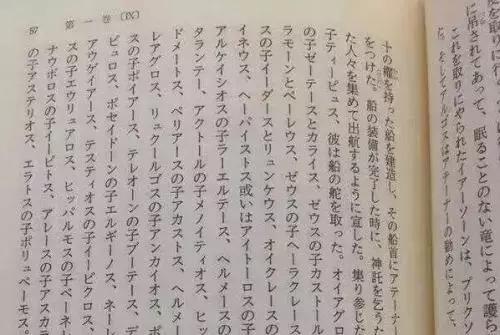 を取りに
に吊されてあって、眠ることのない竜によって護
これを取りにやられたイアーソーンは、プリクソ
た。そしてアルゴスはアテーナーの勧めによって、
十の櫂を持った船を建造し、その船首にアテーナ
をつけた。船の装備が完了した時に、神託を乞うた
た人々を集めて出航するように宣した。集り参じた
子ティーピュス、彼は船の舵を取った。オイアグロ
子のゼーテースとカライス、ゼウスの子カスト
ラモーンとペーレウス、ゼウスの子ヘーラクレー
スの子イーダースとリュンケウス、オイクレースの
アルケイシオスの子ラーエルテース、ヘルメースの
イネウス、ヘーパイストス或いはアイトーロスの子
タランテー、アクトールの子メノイティオス、
ドメートス、ペリアースの子アカストス、ヘルメー
レアグロス、リュクールゴスの子アンカイオス、
スの子ポイアース、テレオーンの子ブーテース、
ビュロス、ポセイドーンの子エルギーノス、ネー
アウゲイアース、テスティオスの子イーピクロス、
スの子エウリュアロス、ヒッパルモスの子ペーネ
ナウボロスの子イーピトス、アレースの子アスカ
の子アステリオス、エラトスの子ポリュペーモス。
57 第一巻(IX)